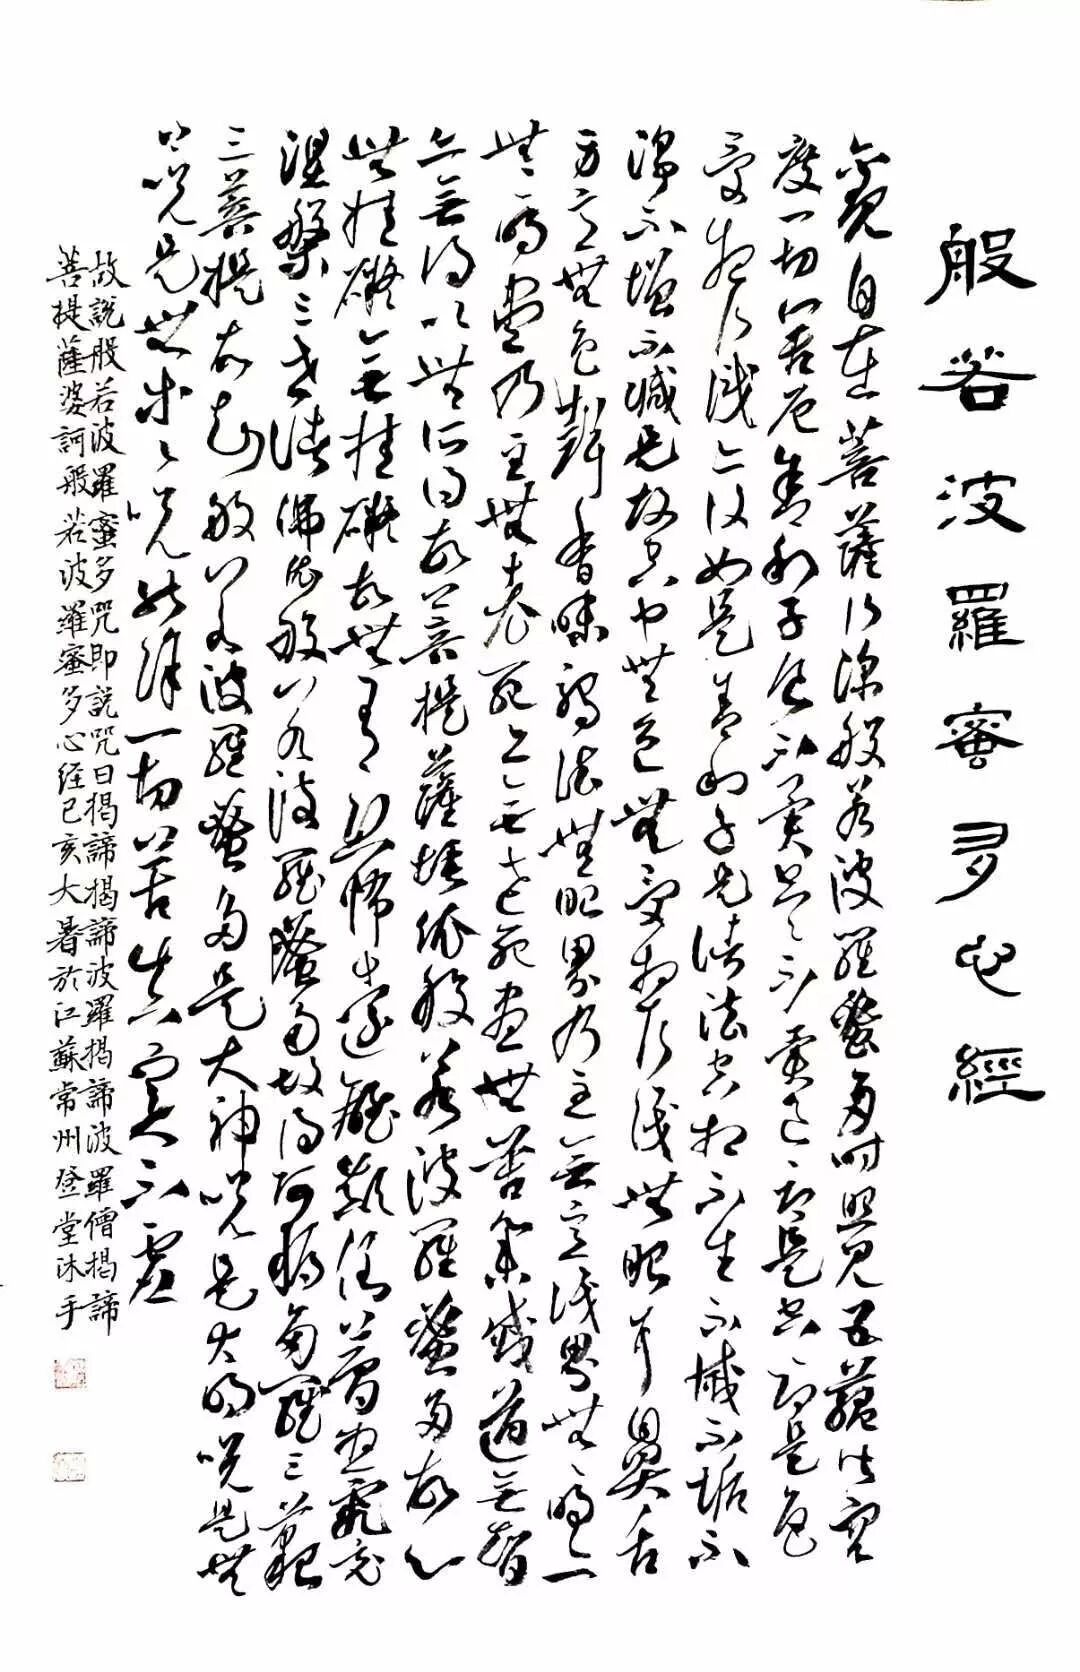 般若波羅蜜多心經
觀自在菩薩行深般若波羅蜜多時照見五蘊皆空
度一切苦厄舍利子色不異空空不異色色即是空空即是色
受想行識亦復如是舍利子是諸法空相不生不滅不垢不
淨不增不減是故空中無色無受想行識無眼耳鼻舌
身意無色聲香味觸法無眼界乃至無意識界無無明亦
無無明盡乃至無老死亦無老死盡無苦集滅道無智
亦無得以無所得故菩提薩埵依般若波羅蜜多故心
無挂礙無挂礙故無有恐怖遠離顛倒夢想究竟
涅槃三世諸佛依般若波羅蜜多故得阿耨多羅三藐
三菩提故知般若波羅蜜多是大神咒是大明咒是無
上咒是無等等咒能除一切苦真實不虛
故説般若波羅蜜多咒即説咒曰揭諦揭諦波羅揭諦波羅僧揭諦
菩提薩婆訶般若波羅蜜多心经己亥大暑於江蘇常州登堂沐手